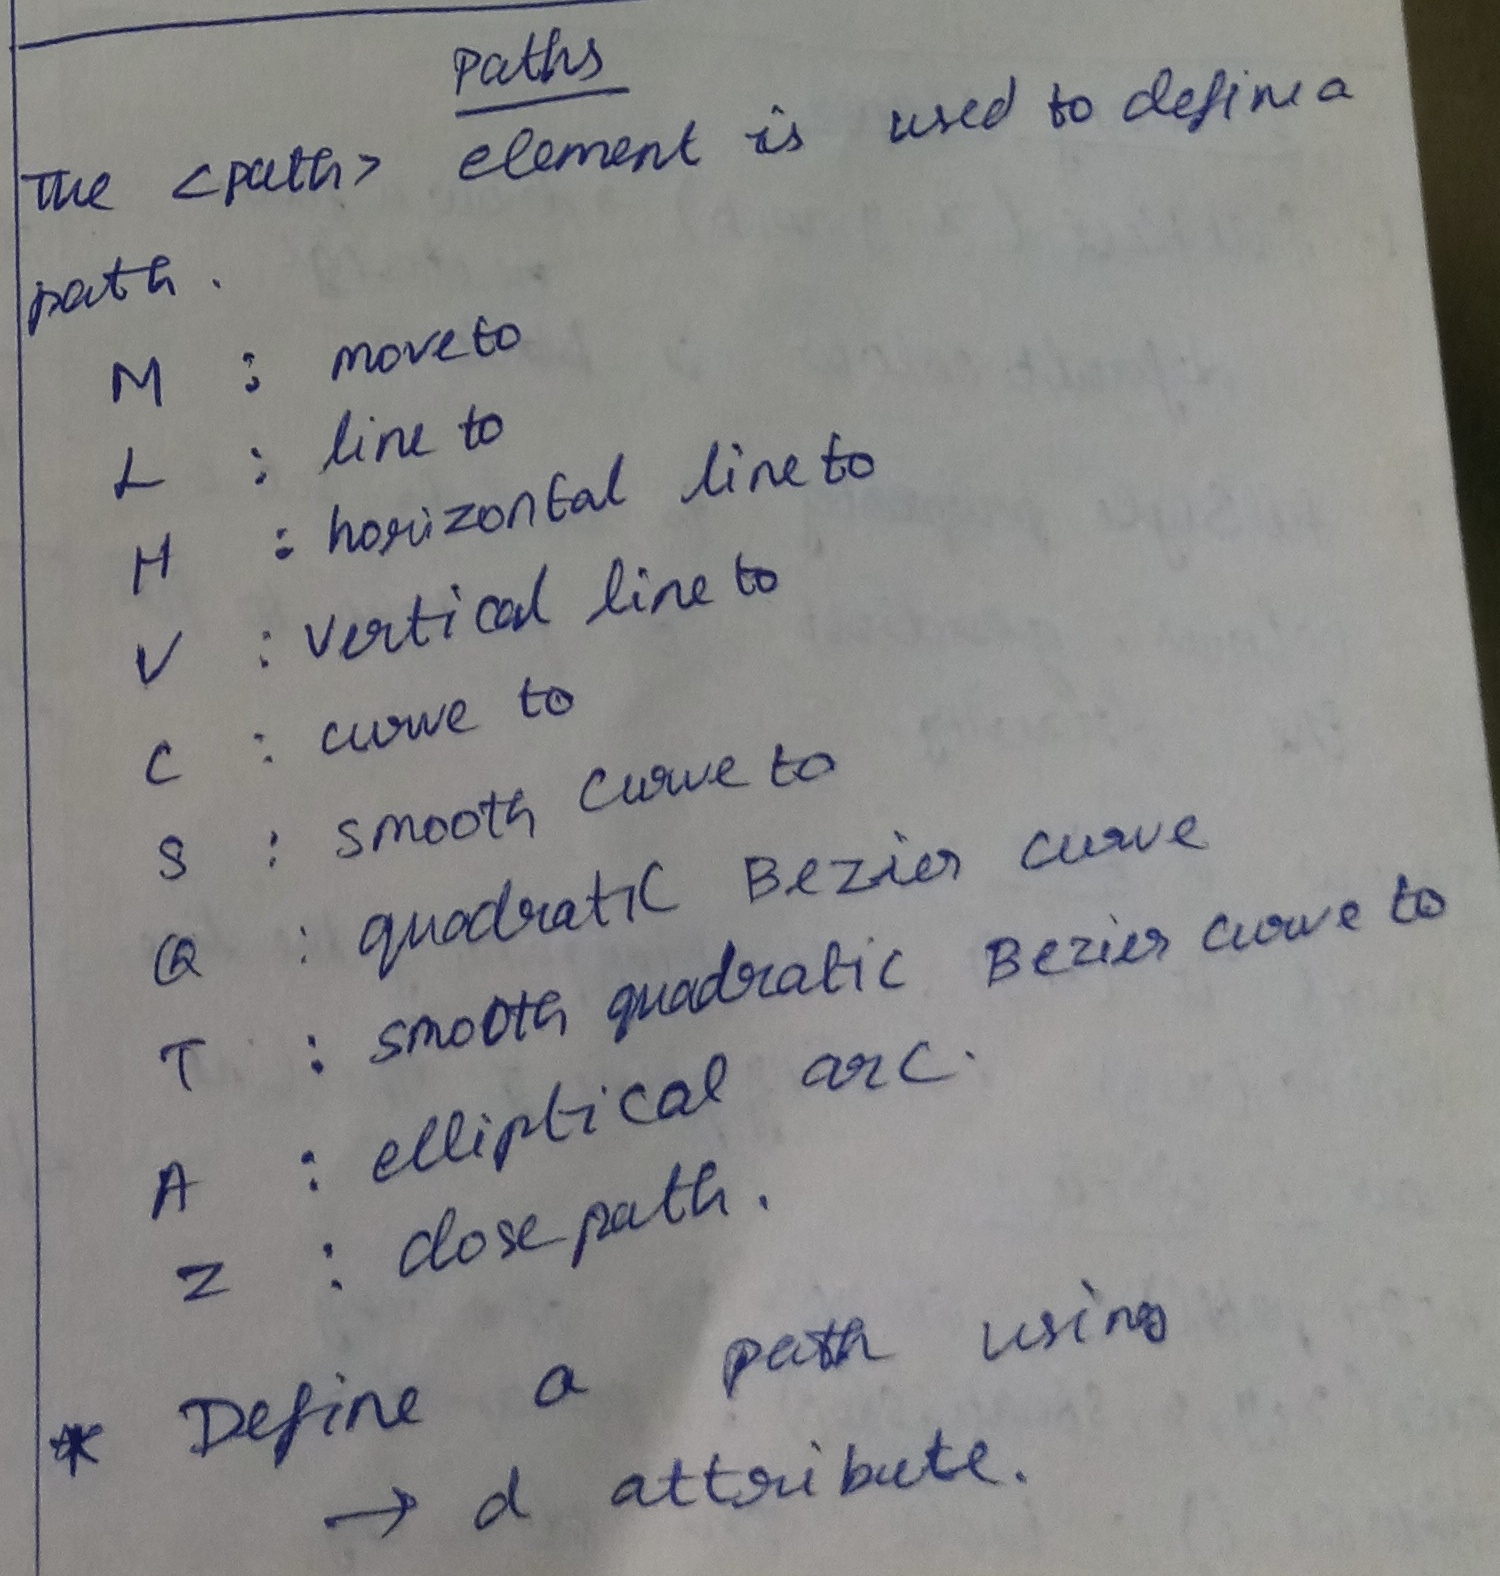 Paths
The <path> element is used to define a
path.
M : moveto
L : line to
H : horizontal line to
V : vertical line to
C : curve to
S : smooth curve to
Q : quadratic Bezier curve
T : smooth quadratic Bezier curve to
A : elliptical arc.
Z : close path.
* Define a path using
→ d attribute.